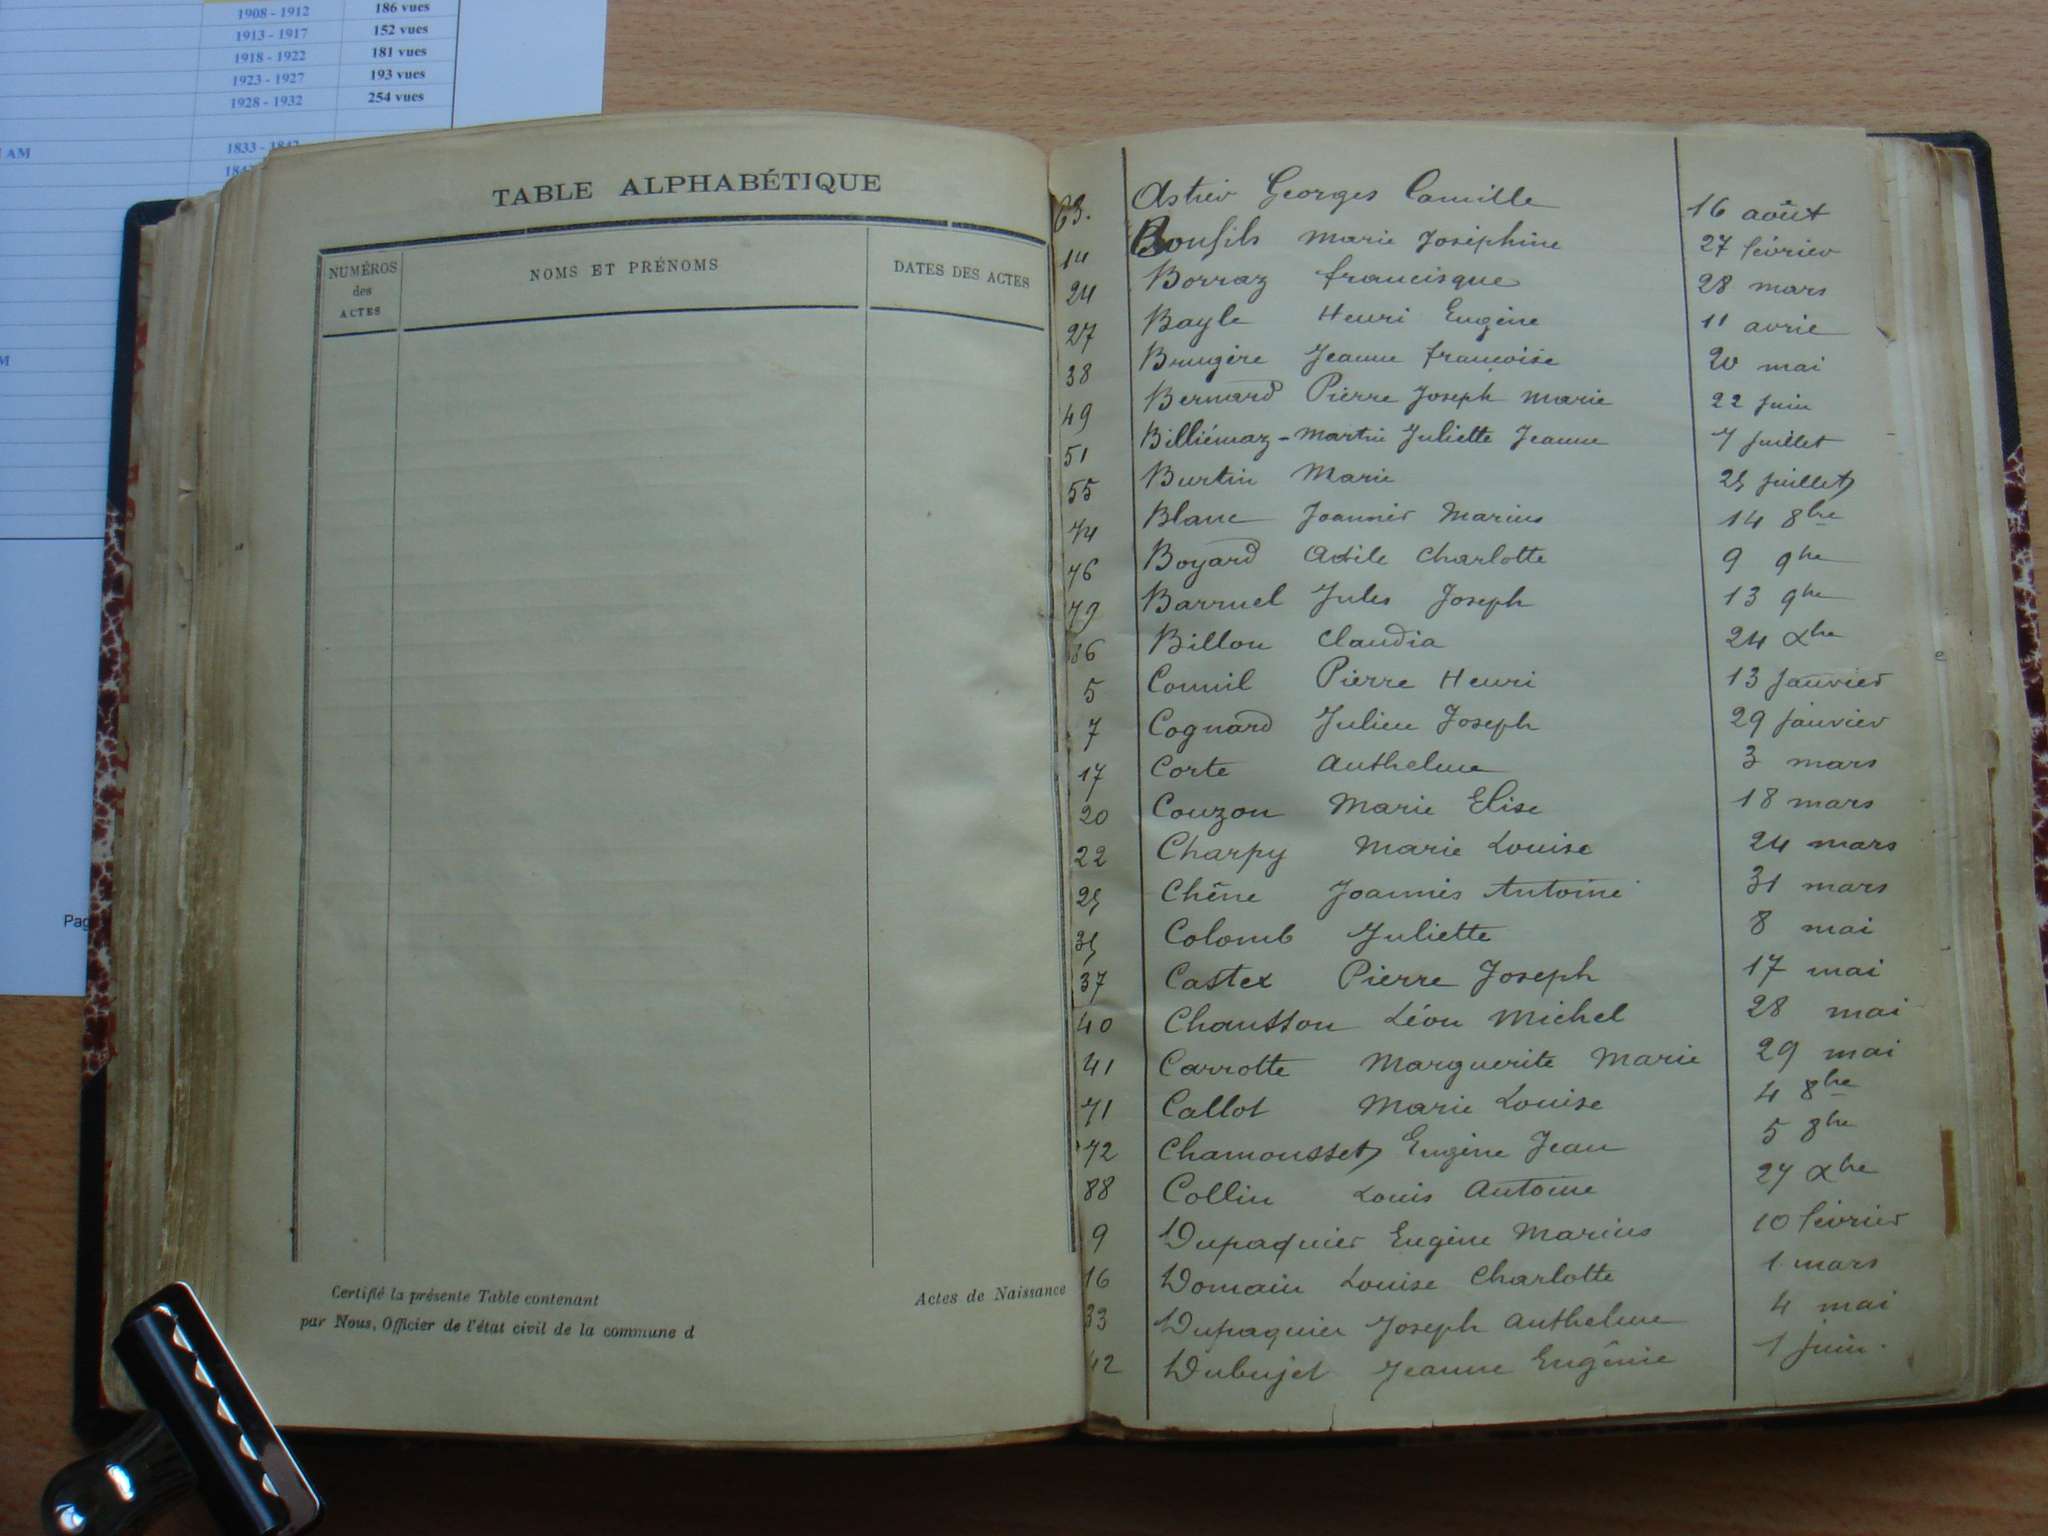 1908 - 1912 186 vues
1913 - 1917 152 vues
1918 - 1922 181 vues
1923 - 1927 193 vues
1928 - 1932 254 vues
AM 1833 - 1842
M
Pag
TABLE ALPHABÉTIQUE
NUMÉROS des ACTES
NOMS ET PRÉNOMS
DATES DES ACTES
Certifié la présente Table contenant Actes de Naissance
par Nous, Officier de l'état civil de la commune d
63. Astier Georges Camille 16 août
14 Bonfils Marie Joséphine 27 février
24 Borraz francisque 28 mars
27 Bayle Henri Eugène 11 avril
38 Brugère Jeanne françoise 20 mai
49 Bernard Pierre Joseph Marie 22 juin
51 Billiémaz - Martin Juliette Jeanne 7 juillet
55 Burtin Marie 25 juillet
74 Blanc Joannès Marius 14 8bre
76 Boyard Odile Charlotte 9 9bre
79 Barruel Jules Joseph 13 9bre
86 Billon Claudia 24 Xbre
5 Connil Pierre Henri 13 janvier
7 Cognard Julien Joseph 29 janvier
17 Corte Anthelme 3 mars
20 Couzon Marie Elise 18 mars
22 Charpy Marie Louise 24 mars
25 Chêne Joannès Antoine 31 mars
35 Colomb Juliette 8 mai
37 Castex Pierre Joseph 17 mai
40 Chausson Léon Michel 28 mai
41 Carrotte Marguerite Marie 29 mai
71 Callot Marie Louise 4 8bre
72 Chamousset Eugène Jean 5 8bre
88 Collin Louis Antoine 27 Xbre
9 Dupaquier Eugène Marius 10 février
16 Domain Louise Charlotte 1 mars
33 Dupaquier Joseph Anthelme 4 mai
42 Dubujet Jeanne Eugénie 1 juin.